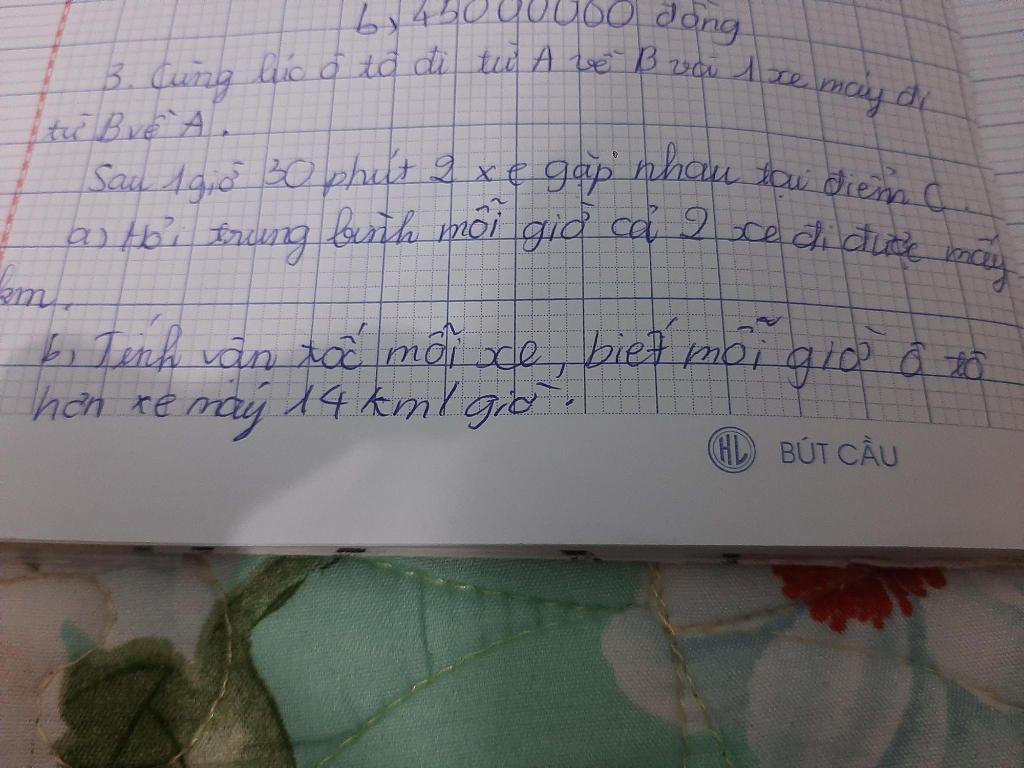 b, 45000000 đồng
3. Cùng lúc ô tô đi từ A về B với 1 xe máy đi
từ B về A.
Sau 1 giờ 30 phút 2 xe gặp nhau tại điểm C.
a) Hỏi trung bình mỗi giờ cả 2 xe đi được mấy
km.
b, Tính vận tốc mỗi xe, biết mỗi giờ ô tô
hơn xe máy 14 km/giờ.
HL BÚT CẦU